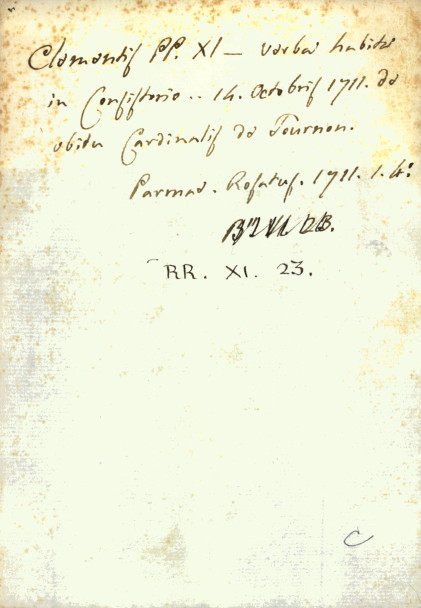 Clementis PP. XI — verba habita
in Consistorio .. 14. Octobris 1711. de
obitu Cardinalis de Tournon.
Parmae. Rosatus. 1711. 1. 4:
RR. XI. 23.
C